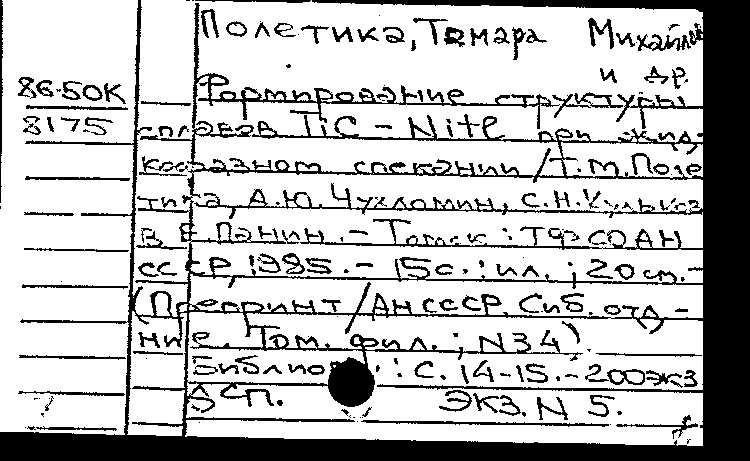 Полетика, Тамара Михайлов
и др.
86-50К
Формирование структуры
8175
сплавов TiC-NiTe при жид-
кофазном спекании / Т.М. Поле
тика, А.Ю. Чухломин, С.Н. Кулько
В.Е. Панин. - Томск : ТФ СОАН
СССР, 1985. - 15 с. : ил. ; 20 см. -
(Препринт / АН СССР, Сиб. отд-
ние. Том. фил. ; N 34).
: С. 14-15. - 200 экз
ДСП. ЭКЗ. N 5.